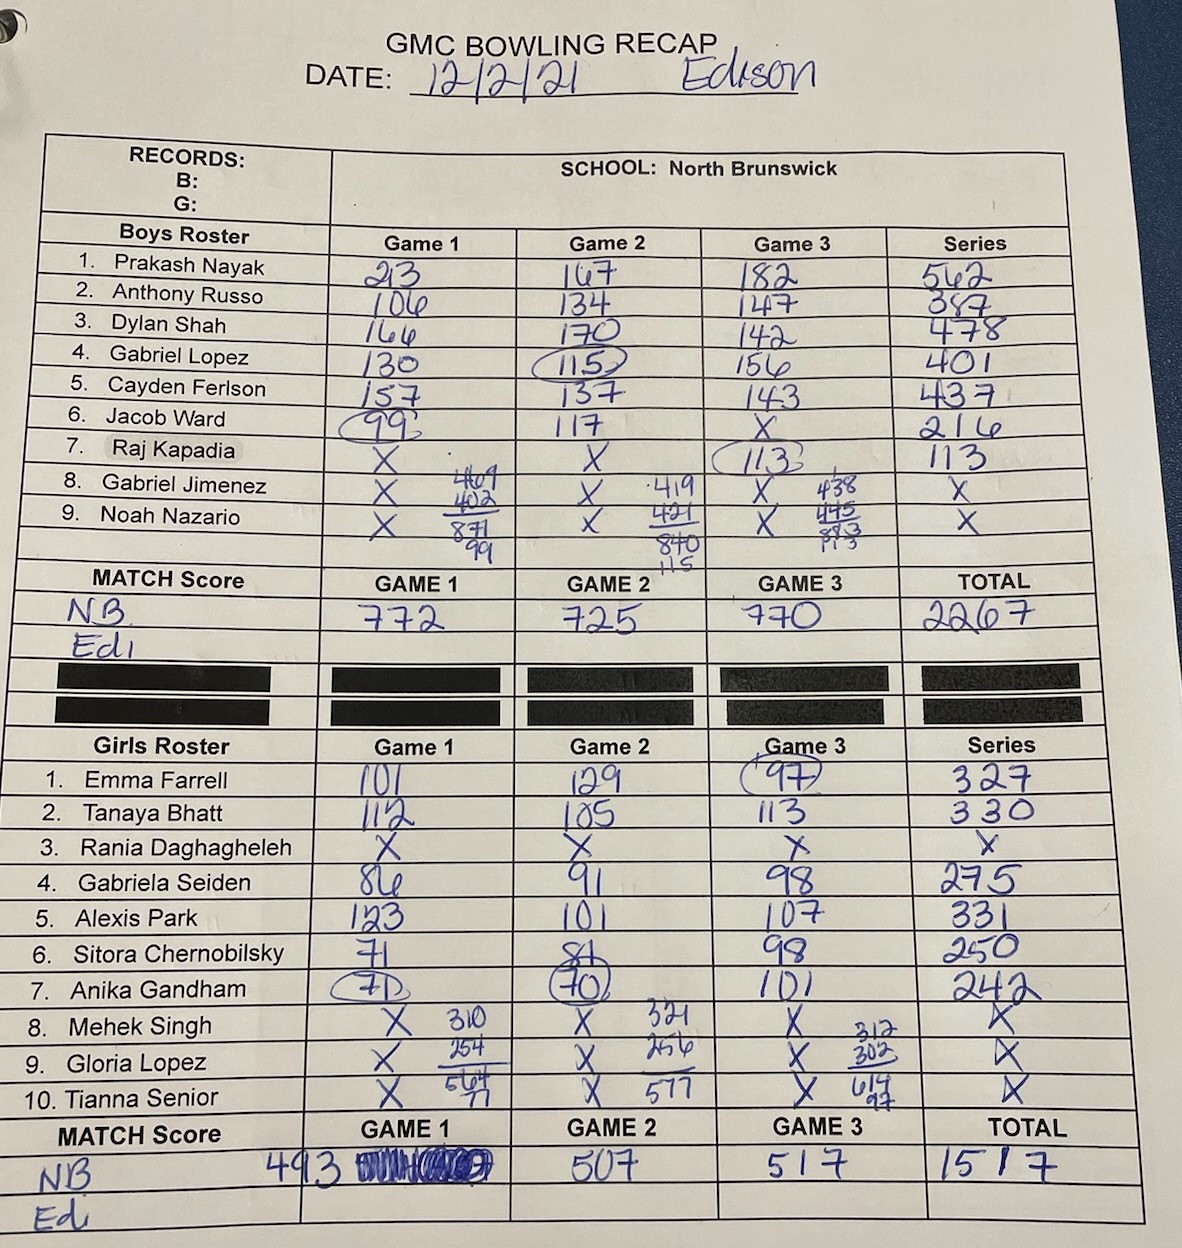 GMC BOWLING RECAP
DATE: 12/2/21 Edison
RECORDS:
B:
G:
SCHOOL: North Brunswick
Boys Roster Game 1 Game 2 Game 3 Series
1. Prakash Nayak 213 167 182 562
2. Anthony Russo 106 134 147 387
3. Dylan Shah 166 170 142 478
4. Gabriel Lopez 130 115 156 401
5. Cayden Ferlson 157 137 143 437
6. Jacob Ward 99 117 X 216
7. Raj Kapadia X X 113 113
8. Gabriel Jimenez X 469 X 419 X 438 X
9. Noah Nazario X 402 X 421 X 445 X
871 840 883
99 115 113
MATCH Score GAME 1 GAME 2 GAME 3 TOTAL
NB 772 725 770 2267
Edi
Girls Roster Game 1 Game 2 Game 3 Series
1. Emma Farrell 101 129 97 327
2. Tanaya Bhatt 112 105 113 330
3. Rania Daghagheleh X X X X
4. Gabriela Seiden 86 91 98 275
5. Alexis Park 123 101 107 331
6. Sitora Chernobilsky 71 81 98 250
7. Anika Gandham 71 70 101 242
8. Mehek Singh X 310 X 321 X 312 X
9. Gloria Lopez X 254 X 256 X 302 X
10. Tianna Senior X 564 X 577 X 614 X
97
MATCH Score GAME 1 GAME 2 GAME 3 TOTAL
NB 493 507 517 1517
Ed